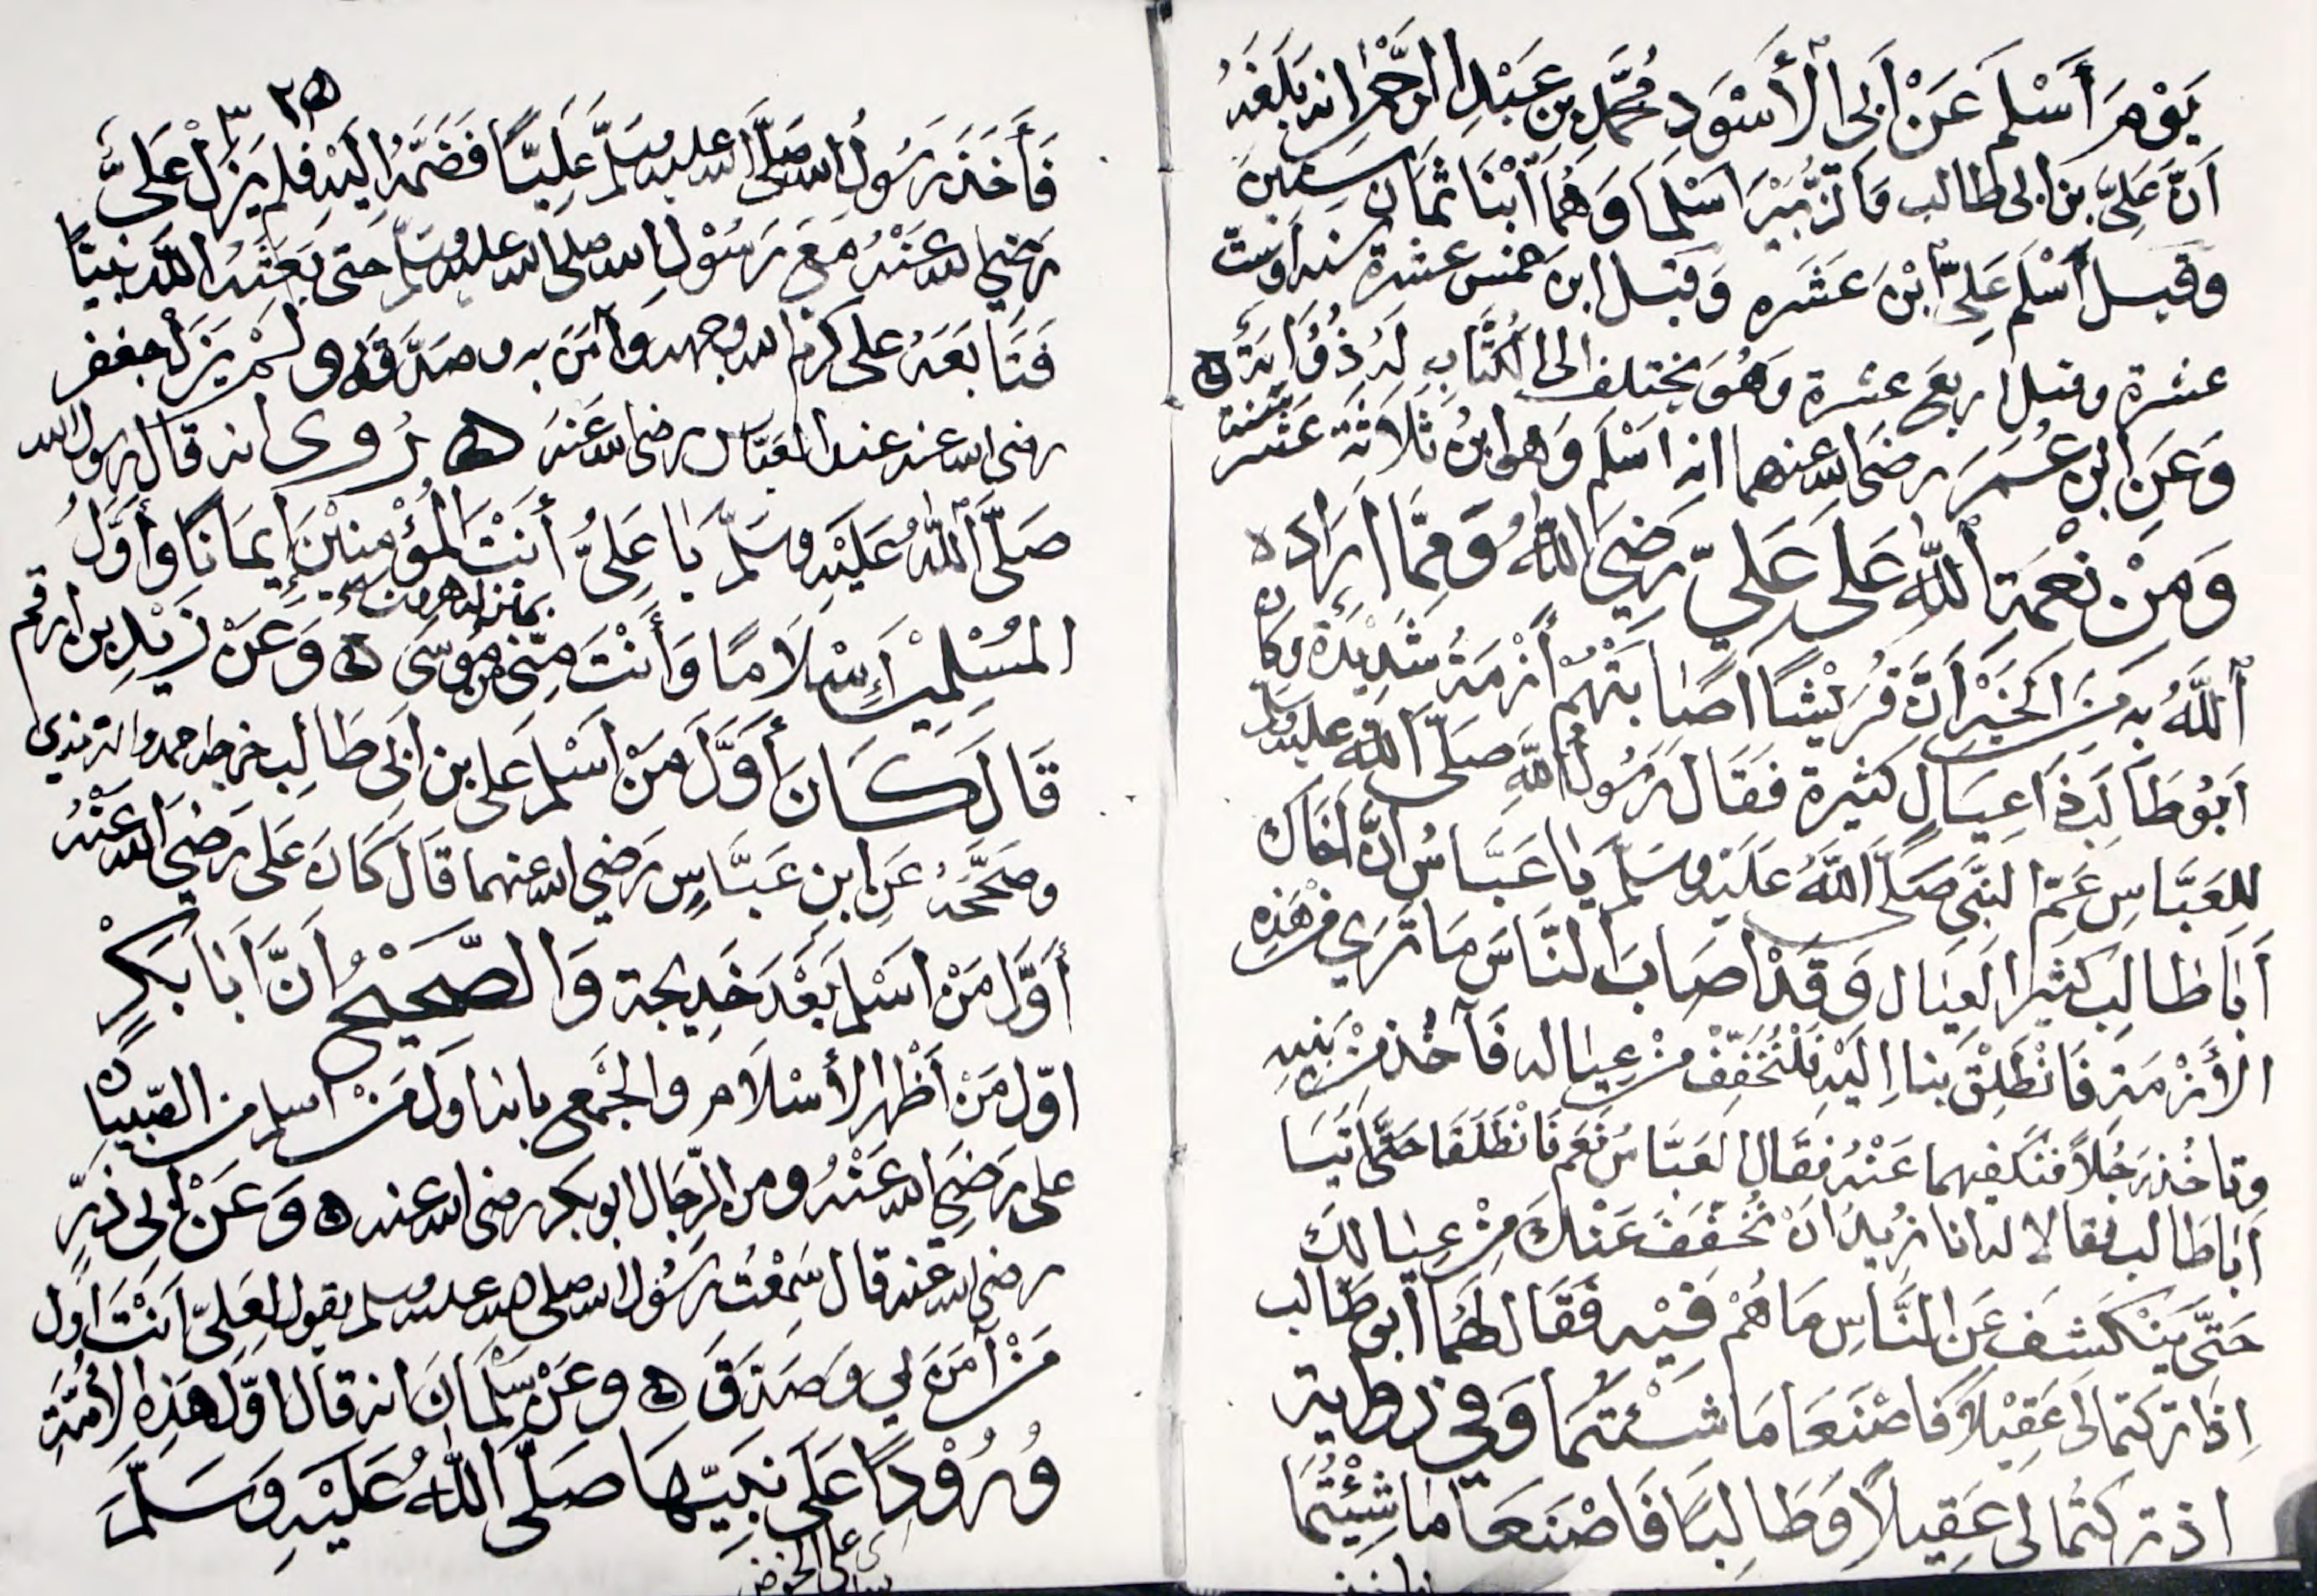 يَوْمَ أَسْلَمَ عَنْ أَبِى الْأَسْوَدِ مُحَمَّدِ بن عَبْدِ الرَّحْمٰنِ انه بَلَغَهُ
أَنَّ عَلِىَّ بن ابى طالب وَالزُّبَيْرَ اَسْلَمَا وَهُمَا اَبْنَا ثَمَان سِنِينَ
وقيل أَسْلَمَ عَلِىٌّ ابْنَ عَشَره وَقيل ابن خمس عشرة سنه اوست
عشرة وقيل اربع عشرة وَهُوَ يختلف الى الكُتَّابِ لَهُ ذُؤَابَة ه
وَعَن ابن عُمَرَ رضى الله عنهما انه اَسْلَم وَهو ابنُ ثَلَاثَة عَشر سنة
وَمِنْ نِعْمَةِ اللّٰهِ عَلٰى عَلِيٍّ رَضِيَ اللّٰهُ وَمِمَّا اَرَادَه
اَللّٰهُ به مِنَ الخَيْرِ اَنَّ قُرَيْشًا اصَابَتْهُمْ أَزْمَةٌ شَدِيْدَة وكان
اَبُو طَالِب ذَا عِيَالٍ كثيرة فَقَالَ رَسُولُ اللّٰهِ صَلَّى اللّٰهُ عليه وسلم
للعَبَّاسِ عَمِّ النبى صَلَّى اللّٰهُ عَلَيْهِ وسَلَّمَ يَا عَبَّاسُ اِنَّ اَخَاكَ
اَبَا طَالِب كَثِيرُ العِيَال وَقَدْ اصَابَ النَّاسَ مَا تَرَي من هَذِهِ
الأَزْمَة فَانْطَلِقْ بِنا اِلَيْهِ فَلْنُخَفِّفْ مِنْ عِيَاله فَآخُذ مِنْ بَنِيهِ
وتاخُذ رَجُلاً فنكفيهما عَنْهُ فَقَال العَبَّاسُ نَعَم فَانْطَلَقَا حَتَّى اَتَيَا
اَبَا طَالب فقالا له انا نُرِيدُ اَنْ نُخَفِّفَ عَنْكَ مِنْ عِيَالِكَ
حَتَّى يَنْكَشِف عَنِ النَّاسِ مَا هُمْ فِيْهِ فَقَالَ لَهُمَا اَبو طَالب
اِذَا تركتما لى عَقِيْلاً فَاصْنَعَا مَا شئتما وَفِي رواية
اذ تركتما لى عَقِيلاً وَطَالِبًا فَاصْنَعَا مَا شِئْتُمَا
فَأَخَذَ رَسُولُ الله صَلَّى الله عليه وسَلَّمَ عَلِيًّا فَضَمَّهُ اِلَيْهِ فلم يَزَلْ عَلِىٌّ
رَضِيَ الله عَنْهُ مَعَ رَسُوْلِ الله صلى الله عليه وسَلَّم حتى بَعَثَهُ اللّٰه نَبِيًّا
فَتَابَعَهُ على كرم الله وجهه وَآمَنَ به وصَدَّقَه ولَمْ يَزَلْ جعفر
رضى الله عنه عند العَبَّاس رضى الله عَنهَ ه رُوى انه قال رسول الله
صَلَّى اللّٰهُ عَلَيْهِ وسَلَّمَ يَا عَلِىُّ أَنْتَ اَوَّلُ الْمُؤْمِنِيْنَ اِيمَانًا وَأَوَّلُ
المُسْلِمِيْنَ اِسْلَامًا وَأَنْتَ مِنِّى بمنزلة هرون من مُوْسَى ه وَعَنْ زَيْدِ بن ارقم
قَالَ كَانَ أَوَّلَ مَنْ اَسْلَمَ عَلى بن ابَى طَالِبٍ خرجه احمد والترمذى
وصَحَّحَهُ عَنِ ابن عَبَّاسٍ رَضي الله عنهما قَالَ كَانَ عَلى رَضِيَ الله عَنْهُ
أَوَّلَ مَنْ اَسْلَمَ بَعْدَ خَدِيجة وَالصَّحِيْحُ اَنَّ اَبَا بَكْرٍ
اوّل مَنْ أَظْهَر الأسْلَام والجَمع بانه اول مَنْ اسلم من الصبيان
على رَضِيَ الله عَنْهُ ومن الرِّجَال ابو بكر رضى الله عنه ه وَعَنْ اَبِى ذَرٍّ
رضى الله عنه قال سَمِعْتُ رَسُوْل الله صلى الله عليه وسلم يقول لِعَلِىّ اَنْتَ اَوَّل
مَنْ آمَنَ بى وصَدَّقَ ه وعَنْ سَلْمَانَ انه قَال اوّلُ هَذِه الأُمَّةِ
وُرُوْدًا عَلَى نَبِيِّهَا صَلَّى اللّٰهُ عَلَيْهِ وَسَلَّمَ
على الحوض